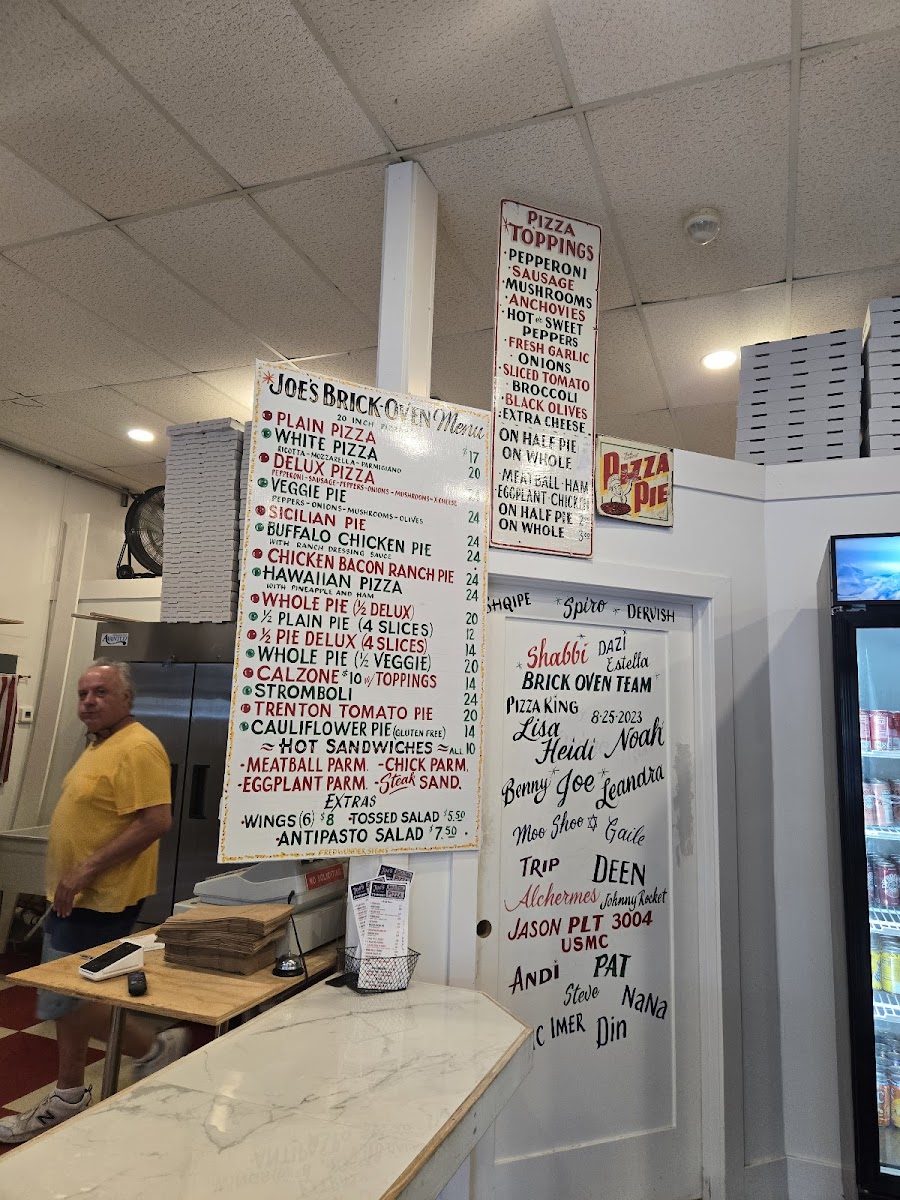 JOE'S BRICK-OVEN Menu
20 INCH
PLAIN PIZZA $17
WHITE PIZZA 20
RICOTTA-MOZZARELLA-PARMIGIANO
DELUX PIZZA
PEPPERONI-SAUSAGE-PEPPERS-ONIONS-MUSHROOMS-X-CHEESE
VEGGIE PIE
PEPPERS-ONIONS-MUSHROOMS-OLIVES
SICILIAN PIE 24
BUFFALO CHICKEN PIE 24
WITH RANCH DRESSING SAUCE
CHICKEN BACON RANCH PIE 24
HAWAIIAN PIZZA 24
WITH PINEAPPLE AND HAM
WHOLE PIE (½ DELUX) 20
½ PLAIN PIE (4 SLICES) 12
½ PIE DELUX (4 SLICES) 14
WHOLE PIE (½ VEGGIE) 20
CALZONE $10 w/ TOPPINGS 14
STROMBOLI 24
TRENTON TOMATO PIE 20
CAULIFLOWER PIE (GLUTEN FREE) 14
≈ HOT SANDWICHES ≈ ALL 10
·MEATBALL PARM. -CHICK PARM.
·EGGPLANT PARM. ·Steak SAND.
EXTRAS
·WINGS (6) $8 ·TOSSED SALAD $5.50
·ANTIPASTO SALAD $7.50 ·
PIZZA
TOPPINGS
·PEPPERONI
·SAUSAGE
·MUSHROOMS
·ANCHOVIES
·HOT or SWEET
PEPPERS
·FRESH GARLIC
ONIONS
·SLICED TOMATO
·BROCCOLI
·BLACK OLIVES
·EXTRA CHEESE
ON HALF PIE
ON WHOLE
·MEATBALL·HAM
·EGGPLANT·CHICKEN
ON HALF PIE
ON WHOLE
PIZZA
PIE
SHQIPE * Spiro * DERVISH
Shabbi DAZI
Estella
BRICK OVEN TEAM
PIZZA KING
8-25-2023
Lisa
Heidi Noah
Benny Joe Leandra
Moo Shoo ✡ Gaile
TRIP DEEN
Alchermes Johnny Rocket
JASON PLT 3004
USMC
ANDI PAT
Steve NaNa
IMER Din
NO SOLICITING